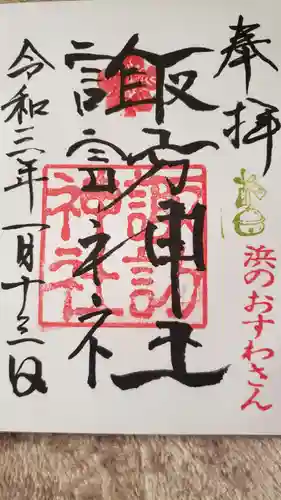 奉拝
浜のおすわさん
諏訪神社
諏訪
神社
令和三年一月十三日